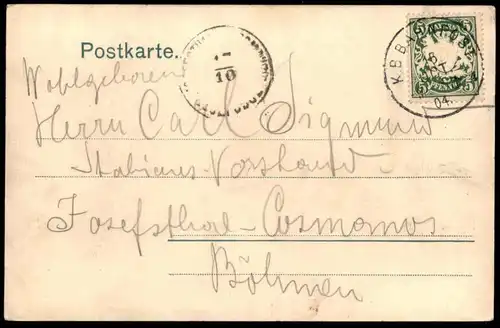 Postkarte.
Wohlgeboren
Herrn Carl Sigmund
Stations-Vorstand
Josefsthal-Cosmanos
Böhmen
10
5 5
04.